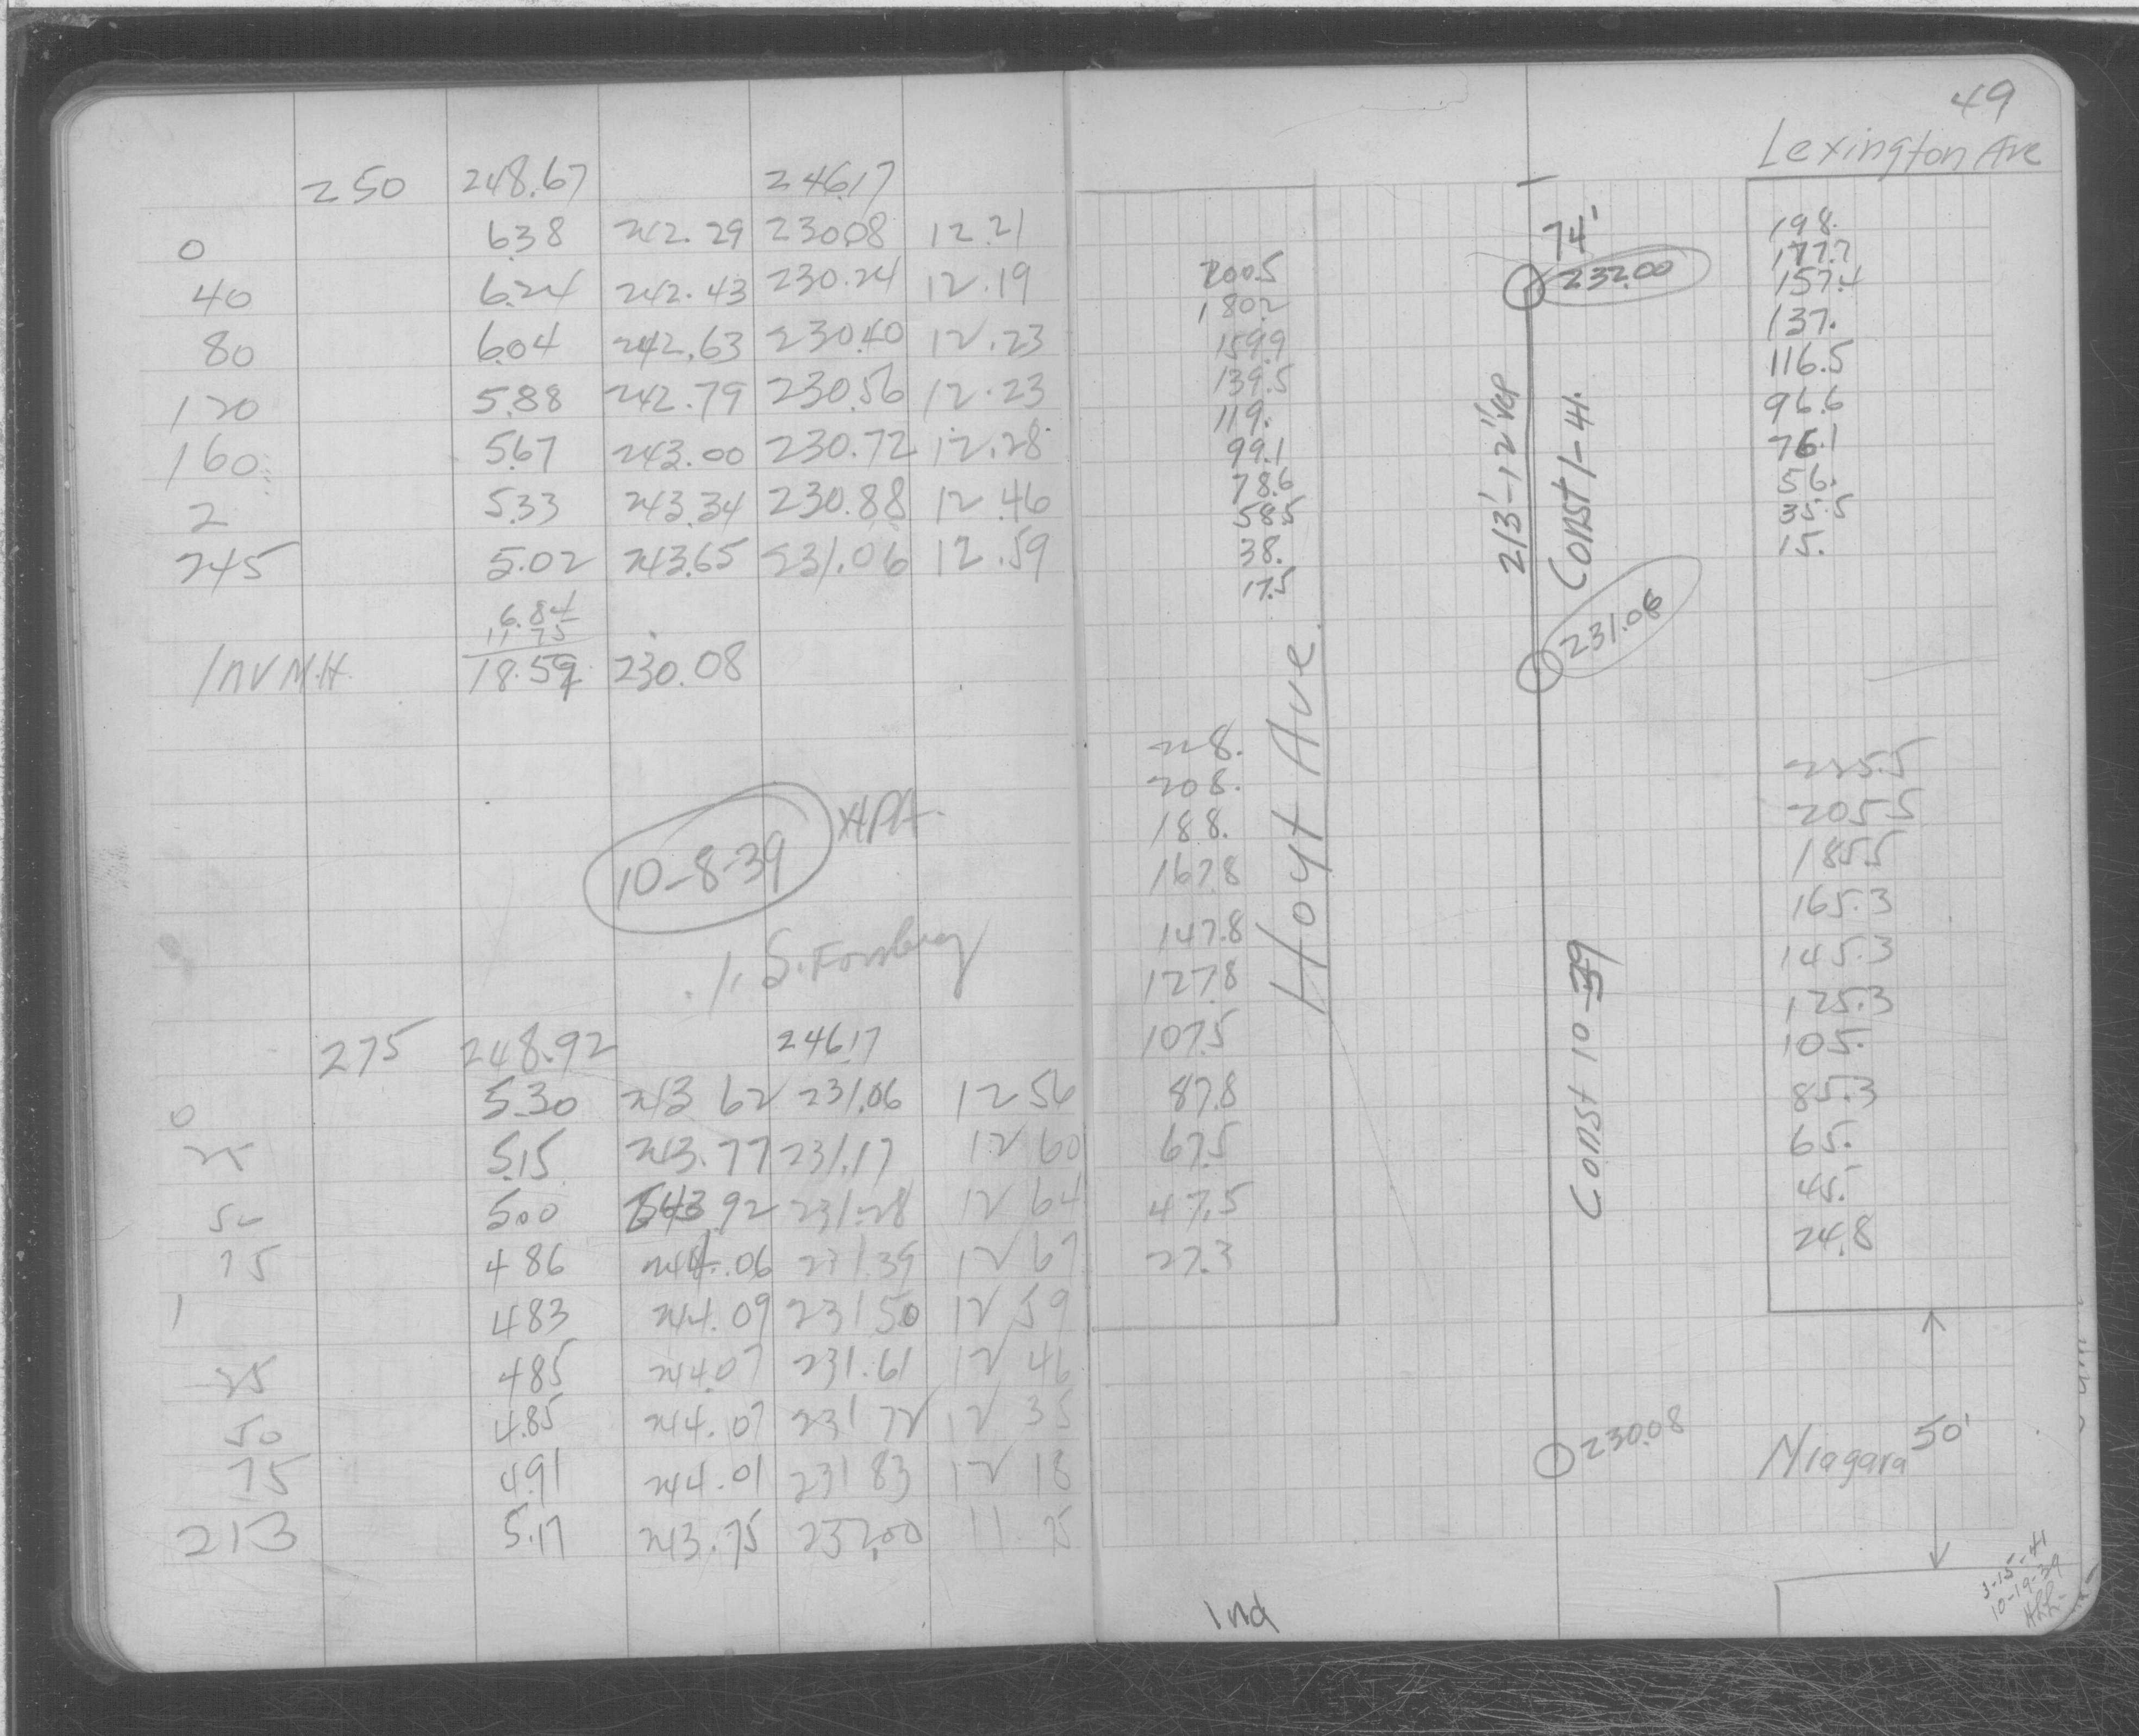 250 248.67 246.17
0 6.38 242.29 230.08 12.21
40 6.24 242.43 230.24 12.19
80 6.04 242.63 230.40 12.23
120 5.88 242.79 230.56 12.23
160 5.67 243.00 230.72 12.28
2 5.33 243.34 230.88 12.46
245 5.02 243.65 231.06 12.59
6.84
11 75
Inv M.H. 18.59 230.08
10-8-39
275 248.92 246.17
0 5.30 243 62 231.06 12 56
25 5.15 243.77 231.17 12 60
50 5.00 243.92 231.28 12 64
75 4 86 244.06 231.39 12 67
1 4 83 244.09 231 50 12 59
25 4 85 244.07 231.61 12 46
50 4.85 244.07 231 72 12 35
75 4.91 244.01 231 83 12 18
213 5.17 243.75 232.00 11 75
49
Lexington Ave
200.5
180.2
159.9
139.5
119.
99.1
78.6
58.5
38.
17.5
Hoyt Ave.
228.
208.
188.
167.8
147.8
127.8
107.5
87.8
67.5
47.5
27.3
74'
232.00
213'-12" VCP
Const 1-41.
231.06
Const 10-39
230.08
198.
177.7
157.4
137.
116.5
96.6
76.1
56.
35.5
15.
225.5
205.5
185.5
165.3
145.3
125.3
105.
85.3
65.
45.
24.8
Niagara 50'
Ind
3-15-41
10-19-39